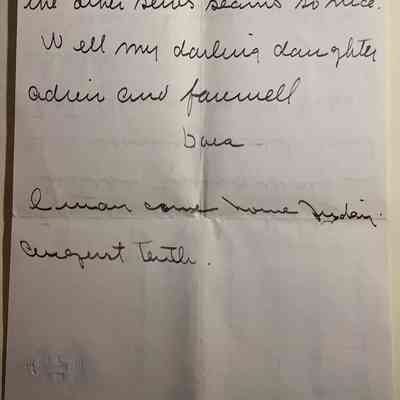 the other seems so nice.
Well my darling daughter
adieu and farewell
I may come home Sunday.
August Tenth.